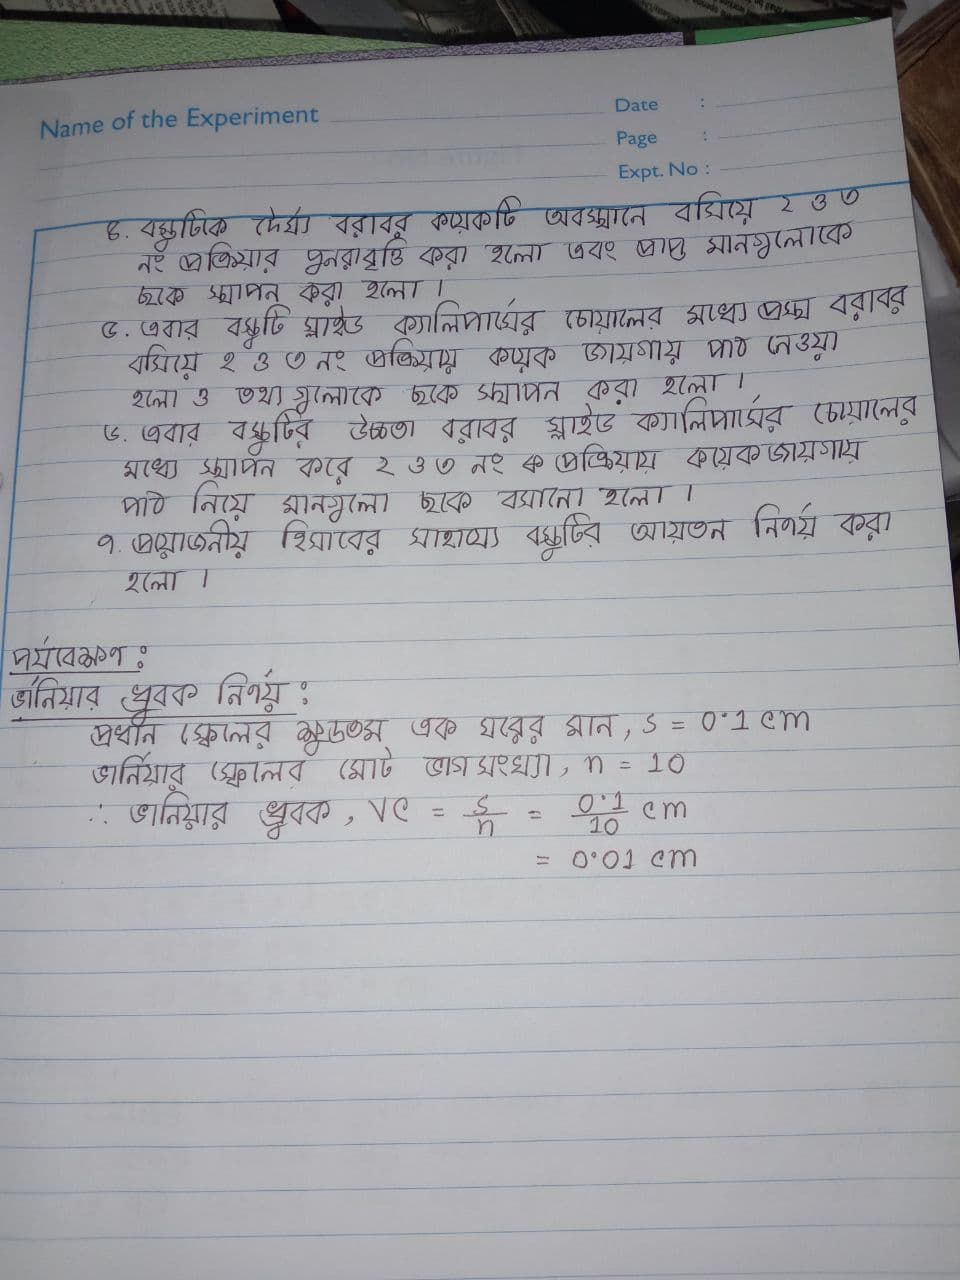 Name of the Experiment
Date :
Page :
Expt. No :
৪. বস্তুটিকে দৈর্ঘ্য বরাবর কয়েকটি অবস্থানে বসিয়ে ২ ও ৩
নং প্রক্রিয়ার পুনরাবৃত্তি করা হলো এবং প্রাপ্ত মানগুলোকে
ছকে স্থাপন করা হলো।
৫. এবার বস্তুটি স্লাইড ক্যালিপার্সের চোয়ালের মধ্যে প্রস্থ বরাবর
বসিয়ে ২ ও ৩ নং প্রক্রিয়ায় কয়েক জায়গায় পাঠ নেওয়া
হলো ও তথ্যগুলোকে ছকে স্থাপন করা হলো।
৬. এবার বস্তুটির উচ্চতা বরাবর স্লাইড ক্যালিপার্সের চোয়ালের
মধ্যে স্থাপন করে ২ ও ৩ নং ক প্রক্রিয়ায় কয়েক জায়গায়
পাঠ নিয়ে মানগুলো ছকে বসানো হলো।
৭. প্রয়োজনীয় হিসাবের সাহায্যে বস্তুটির আয়তন নির্ণয় করা
হলো।
পর্যবেক্ষণ :
ভার্নিয়ার ধ্রুবক নির্ণয় :
প্রধান স্কেলের ক্ষুদ্রতম এক ঘরের মান, s = 0.1 cm
ভার্নিয়ার স্কেলের মোট ভাগসংখ্যা, n = 10
∴ ভার্নিয়ার ধ্রুবক, VC = s/n = 0.1/10 cm
= 0.01 cm